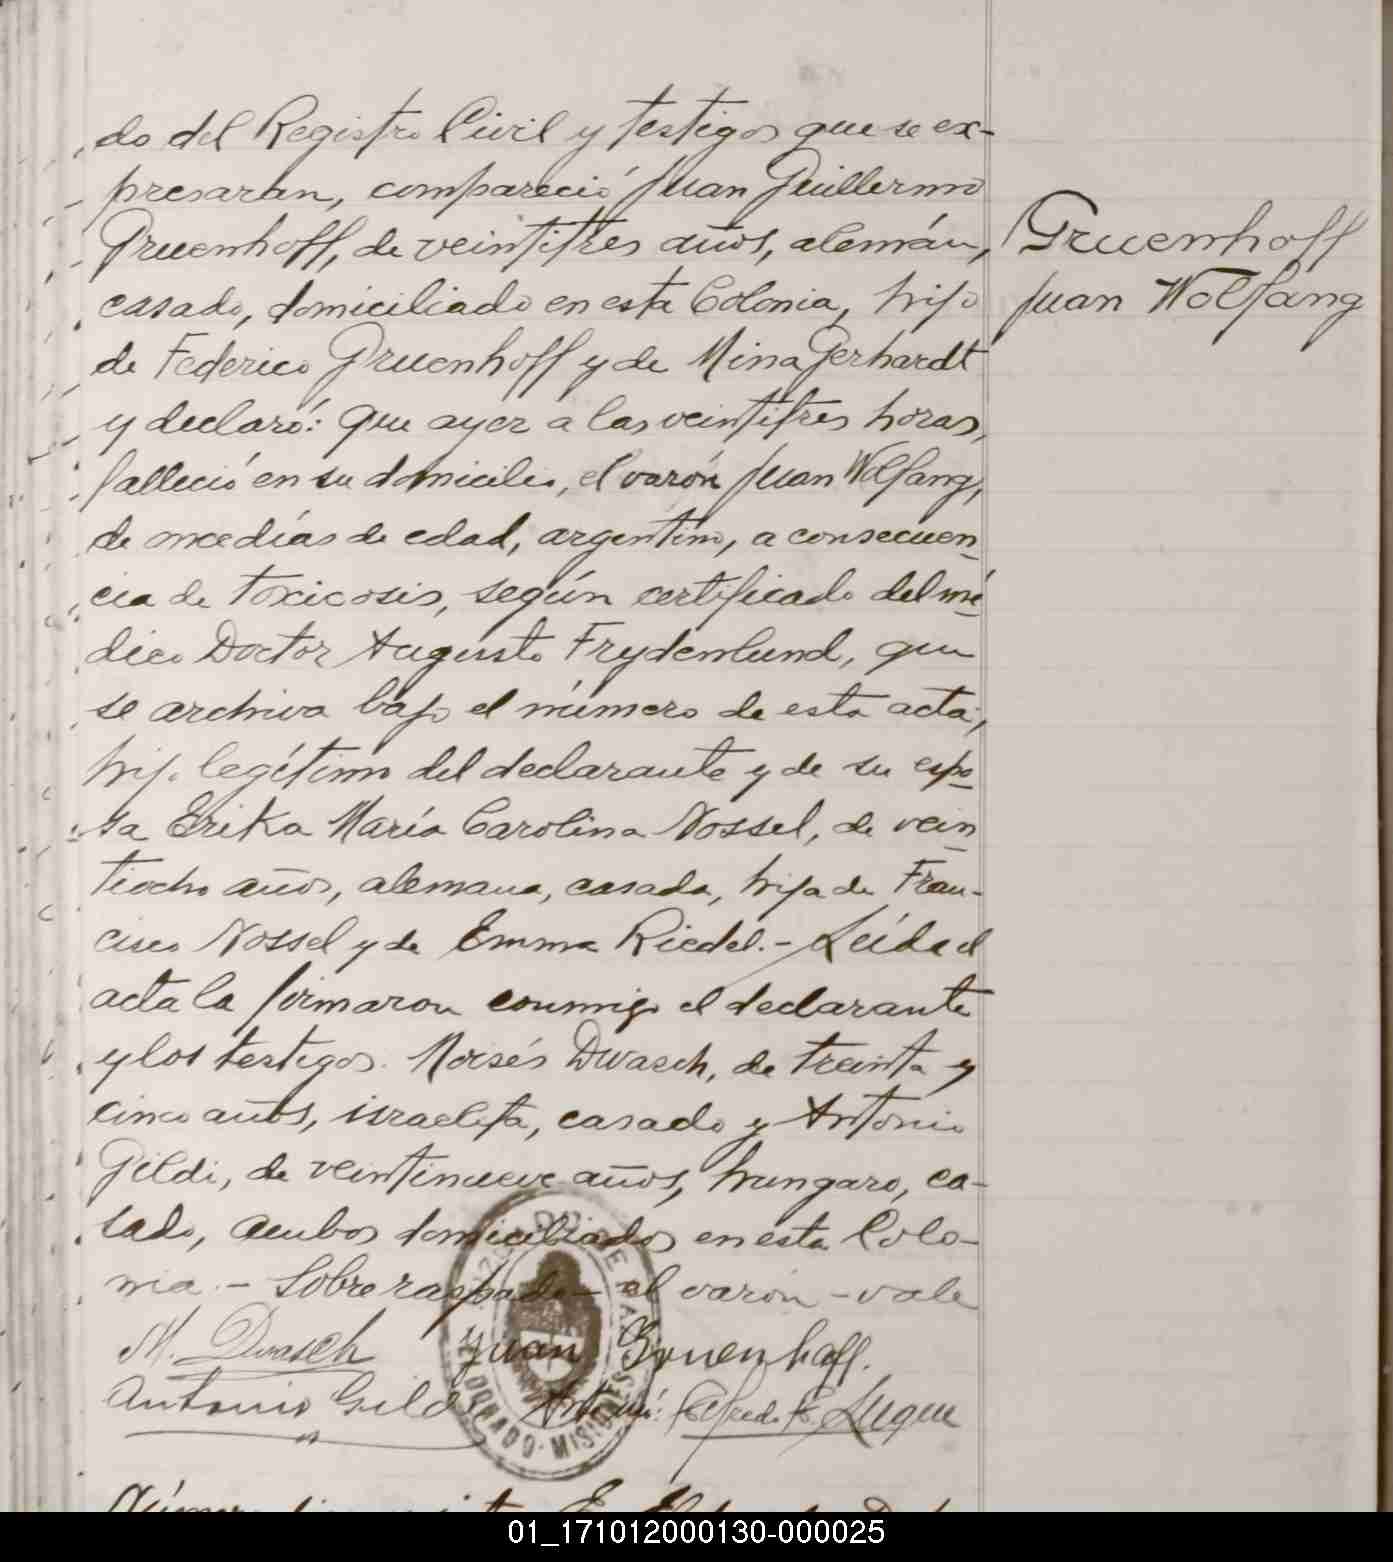 do del Registro Civil y testigos que se ex-
presaran, compareció Juan Guillermo
Gruenhoff, de veintitres años, alemán,
casado, domiciliado en esta Colonia, hijo
de Federico Gruenhoff y de Mina Gerhardt
y declaró: que ayer a las veintitres horas,
falleció en su domicilio, el varón Juan Wolfang,
de once días de edad, argentino, a consecuen-
cia de toxicosis, según certificado del mé-
dico Doctor Augusto Frydenlund, que
se archiva bajo el número de esta acta,
hijo legítimo del declarante y de su espo-
sa Erika María Carolina Nossel, de vein-
tiocho años, alemana, casada, hija de Fran-
cisco Nossel y de Emma Riedel.- Leída el
acta la firmaron conmigo el declarante
y los testigos. Moisés Dwasch, de treinta y
cinco años, israelita, casado y Antonio
Gildi, de veintinueve años, hungaro, ca-
sado, ambos domiciliados en esta Colo-
nia.- Sobre raspado - el varón - vale
M. Dwasch Juan Gruenhoff.
Antonio Gildi Ante mí: Alfredo Luque
Gruenhoff
Juan Wolfang
JUZGADO DE PAZ
ELDORADO - MISIONES
01_171012000130-000025